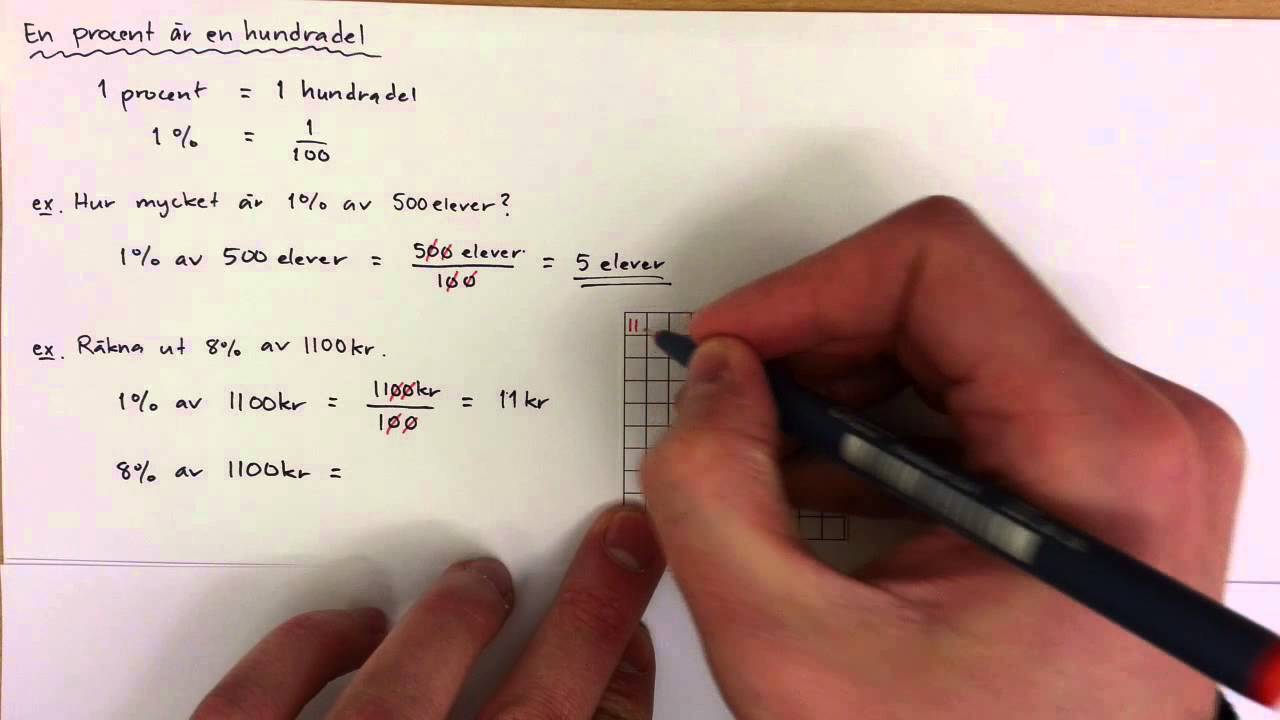 En procent är en hundradel
1 procent = 1 hundradel
1% = 1/100
ex. Hur mycket är 1% av 500 elever?
1% av 500 elever = 500 elever/100 = 5 elever
ex. Räkna ut 8% av 1100kr.
1% av 1100kr = 1100kr/100 = 11kr
8% av 1100kr =
11